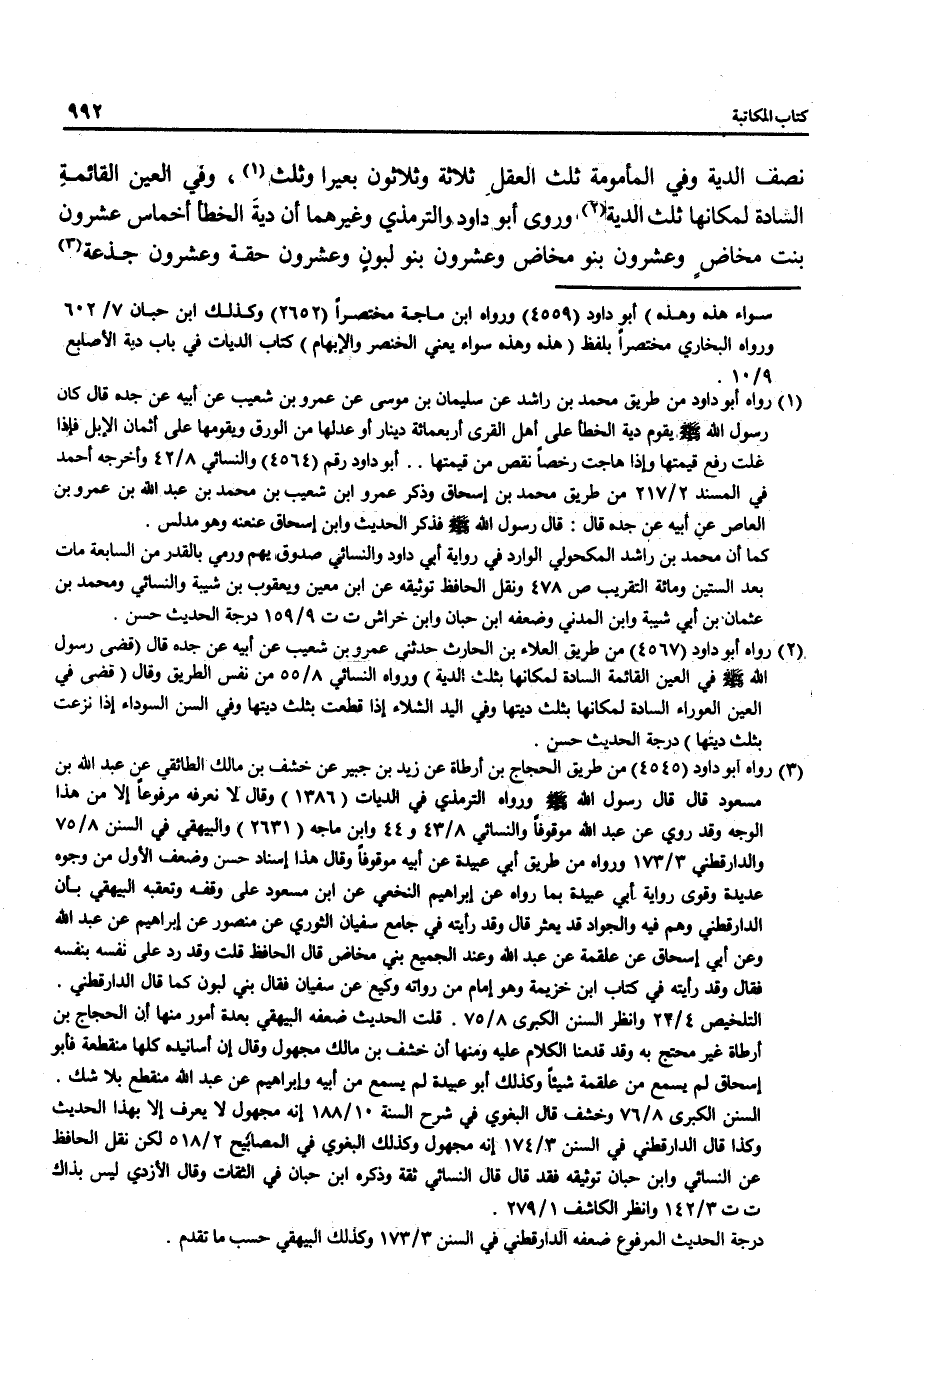 كتاب المكاتبة ٩٩٢
نصف الدية وفي المأمومة ثلث العقل ثلاثة وثلاثون بعيرا وثلث (١) ، وفي العين القائمة
السادة لمكانها ثلث الدية(٢) وروى أبو داود والترمذي وغيرهما أن دية الخطأ أخماس عشرون
بنت مخاض وعشرون بنو مخاض وعشرون بنو لبون وعشرون حقة وعشرون جذعة(٣)
سواء هذه وهذه ) أبو داود (٤٥٥٩) ورواه ابن ماجة مختصراً (٢٦٥٢) وكذلك ابن حبان ٧/ ٦٠٢
ورواه البخاري مختصراً بلفظ ( هذه وهذه سواء يعني الخنصر والإبهام ) كتاب الديات في باب دية الأصابع
١٠/٩ .
(١) رواه أبو داود من طريق محمد بن راشد عن سليمان بن موسى عن عمرو بن شعيب عن أبيه عن جده قال كان
رسول الله ﷺ يقوم دية الخطأ على أهل القرى أربعمائة دينار أو عدلها من الورق ويقومها على أثمان الإبل فإذا
غلت رفع قيمتها وإذا هاجت رخصاً نقص من قيمتها . . أبو داود رقم (٤٥٦٤) والنسائي ٤٢/٨ وأخرجه أحمد
في المسند ٢١٧/٢ من طريق محمد بن إسحاق وذكر عمرو ابن شعيب بن محمد بن عبد الله بن عمرو بن
العاص عن أبيه عن جده قال : قال رسول الله ﷺ فذكر الحديث وابن إسحاق عنعنه وهو مدلس .
كما أن محمد بن راشد المكحولي الوارد في رواية أبي داود والنسائي صدوق يهم ورمي بالقدر من السابعة مات
بعد الستين ومائة التقريب ص ٤٧٨ ونقل الحافظ توثيقه عن ابن معين ويعقوب بن شيبة والنسائي ومحمد بن
عثمان بن أبي شيبة وابن المدني وضعفه ابن حبان وابن خراش ت ت ١٥٩/٩ درجة الحديث حسن .
(٢) رواه أبو داود (٤٥٦٧) من طريق العلاء بن الحارث حدثني عمرو بن شعيب عن أبيه عن جده قال (قضى رسول
الله ﷺ في العين القائمة السادة لمكانها بثلث الدية ) ورواه النسائي ٥٥/٨ من نفس الطريق وقال ( قضى في
العين العوراء السادة لمكانها بثلث ديتها وفي اليد الشلاء إذا قطعت بثلث ديتها وفي السن السوداء إذا نزعت
بثلث ديتها ) درجة الحديث حسن .
(٣) رواه أبو داود (٤٥٤٥) من طريق الحجاج بن أرطاة عن زيد بن جبير عن خشف بن مالك الطائقي عن عبد الله بن
مسعود قال قال رسول الله ﷺ ورواه الترمذي في الديات ( ١٣٨٦ ) وقال لا نعرفه مرفوعاً إلا من هذا
الوجه وقد روي عن عبد الله موقوفاً والنسائي ٤٣/٨ و ٤٤ وابن ماجه ( ٢٦٣١ ) والبيهقي في السنن ٧٥/٨
والدارقطني ١٧٣/٣ ورواه من طريق أبي عبيدة عن أبيه موقوفاً وقال هذا إسناد حسن وضعف الأول من وجوه
عديدة وقوى رواية أبي عبيدة بما رواه عن إبراهيم النخعي عن ابن مسعود على وقفه وتعقبه البيهقي بأن
الدارقطني وهم فيه والجواد قد يعثر قال وقد رأيته في جامع سفيان الثوري عن منصور عن إبراهيم عن عبد الله
وعن أبي إسحاق عن علقمة عن عبد الله وعند الجميع بني مخاض قال الحافظ قلت وقد رد على نفسه بنفسه
فقال وقد رأيته في كتاب ابن خزيمة وهو إمام من رواته وكيع عن سفيان فقال بني لبون كما قال الدارقطني .
التلخيص ٢٣/٤ وانظر السنن الكبرى ٧٥/٨ . قلت الحديث ضعفه البيهقي بعدة أمور منها أن الحجاج بن
أرطاة غير محتج به وقد قدمنا الكلام عليه ومنها أن خشف بن مالك مجهول وقال إن أسانيده كلها منقطعة فأبو
إسحاق لم يسمع من علقمة شيئاً وكذلك أبو عبيدة لم يسمع من أبيه وإبراهيم عن عبد الله منقطع بلا شك .
السنن الكبرى ٧٦/٨ وخشف قال البغوي في شرح السنة ١٨٨/١٠ إنه مجهول لا يعرف إلا بهذا الحديث
وكذا قال الدارقطني في السنن ١٧٤/٣ إنه مجهول وكذلك البغوي في المصابيح ٥١٨/٢ لكن نقل الحافظ
عن النسائي وابن حبان توثيقه فقد قال قال النسائي ثقة وذكره ابن حبان في الثقات وقال الأزدي ليس بذاك
ت ت ١٤٢/٣ وانظر الكاشف ٢٧٩/١ .
درجة الحديث المرفوع ضعفه الدارقطني في السنن ١٧٣/٣ وكذلك البيهقي حسب ما تقدم .